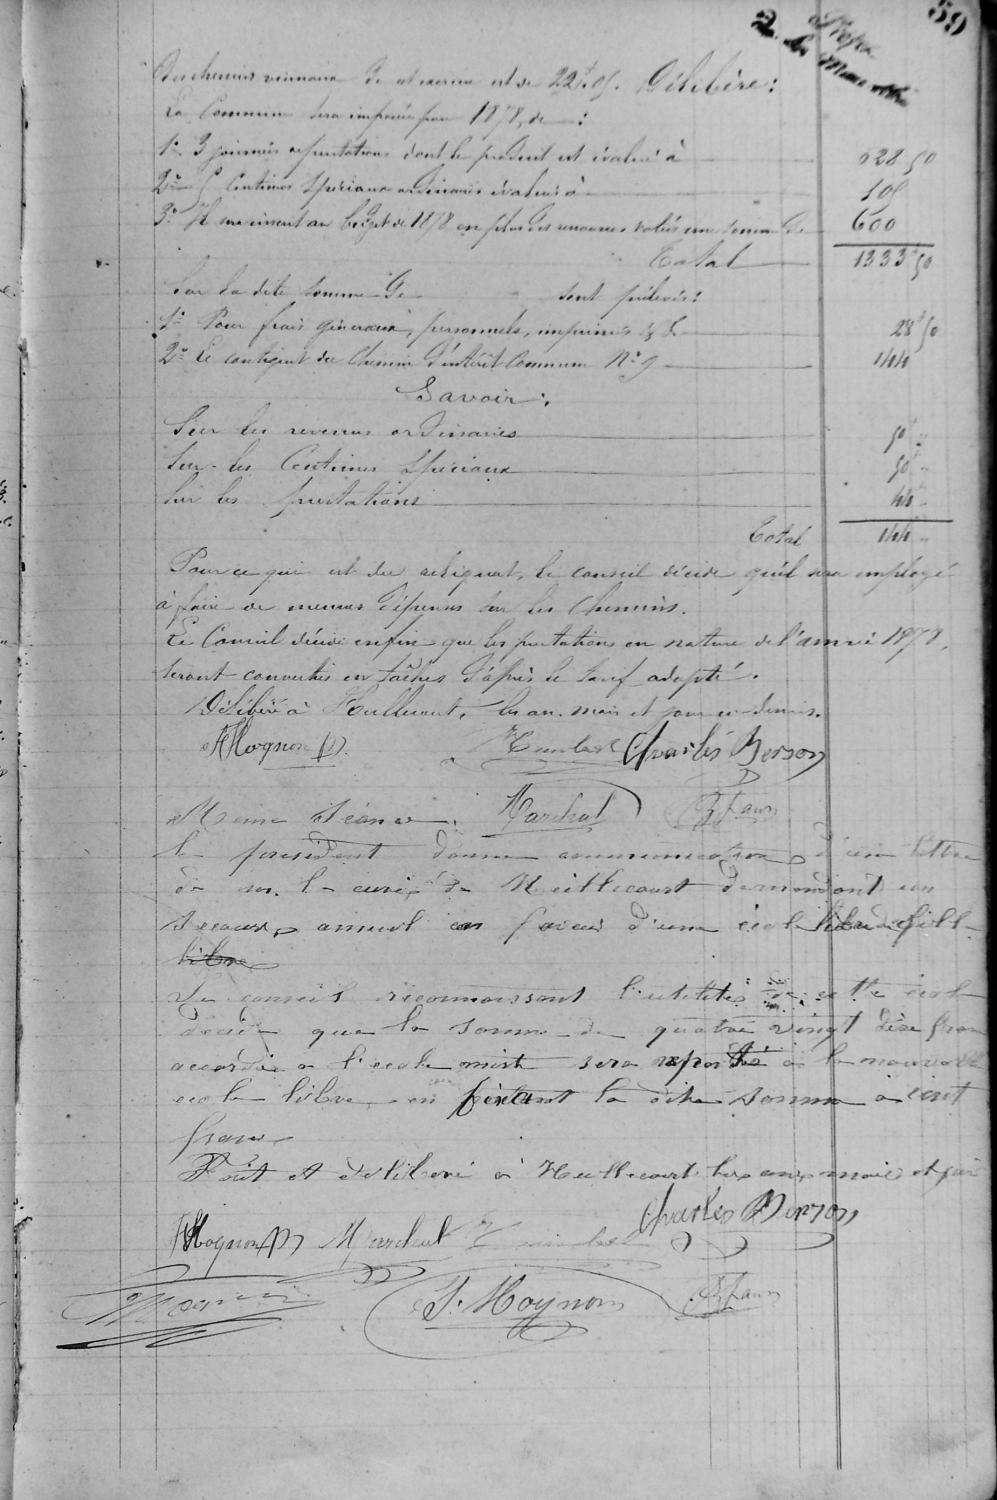 59
des chemins vicinaux de cet exercice est de 22f.05. Délibère :
La Commune sera imposée pour 1878, de :
1° 3 journées de prestations dont le produit est évalué à 628 50
2° 5 Centimes Spéciaux ordinaires évalués à 105
3° Il sera inscrit au budget de 1878 en plus des ressources votées une somme de 600
Total 1333f50
Sur la dite somme de sont prélevés :
1° Pour frais généraux, personnels, imprimés &a 28f50
2° Le contingent du Chemin d'intérêt Commun N° 9 144
Savoir :
Sur les revenus ordinaires 50f "
Sur les Centimes Spéciaux 50f "
Sur les prestations 44 "
Total 144 "
Pour ce qui est du restant, le conseil décide qu'il sera employé
à faire de menues dépenses sur les Chemins.
Le Conseil décide enfin que les prestations en nature de l'année 1878,
seront converties en tâches d'après le tarif adopté.
Délibéré à Huillecourt, les an, mois et jour ci-dessus.
Hognon Charles Berson
Même Séance. Marchal
le président donne communication d'une lettre
de mr. le curé de Huillecourt demandant un
secours annuel en faveur d'une école libre de fille
libre
Le conseil reconnaissant l'utilité de cette école
décide que la somme de quatre vingt dix franc
accordée a l'ecole mixte sera reportée à la nouvelle
ecole libre en portant la dite somme a cent
francs
Fait et délibéré à Huillecourt les ans mois et jour
Charles Berson
Hognon Marchal
J. Hognon